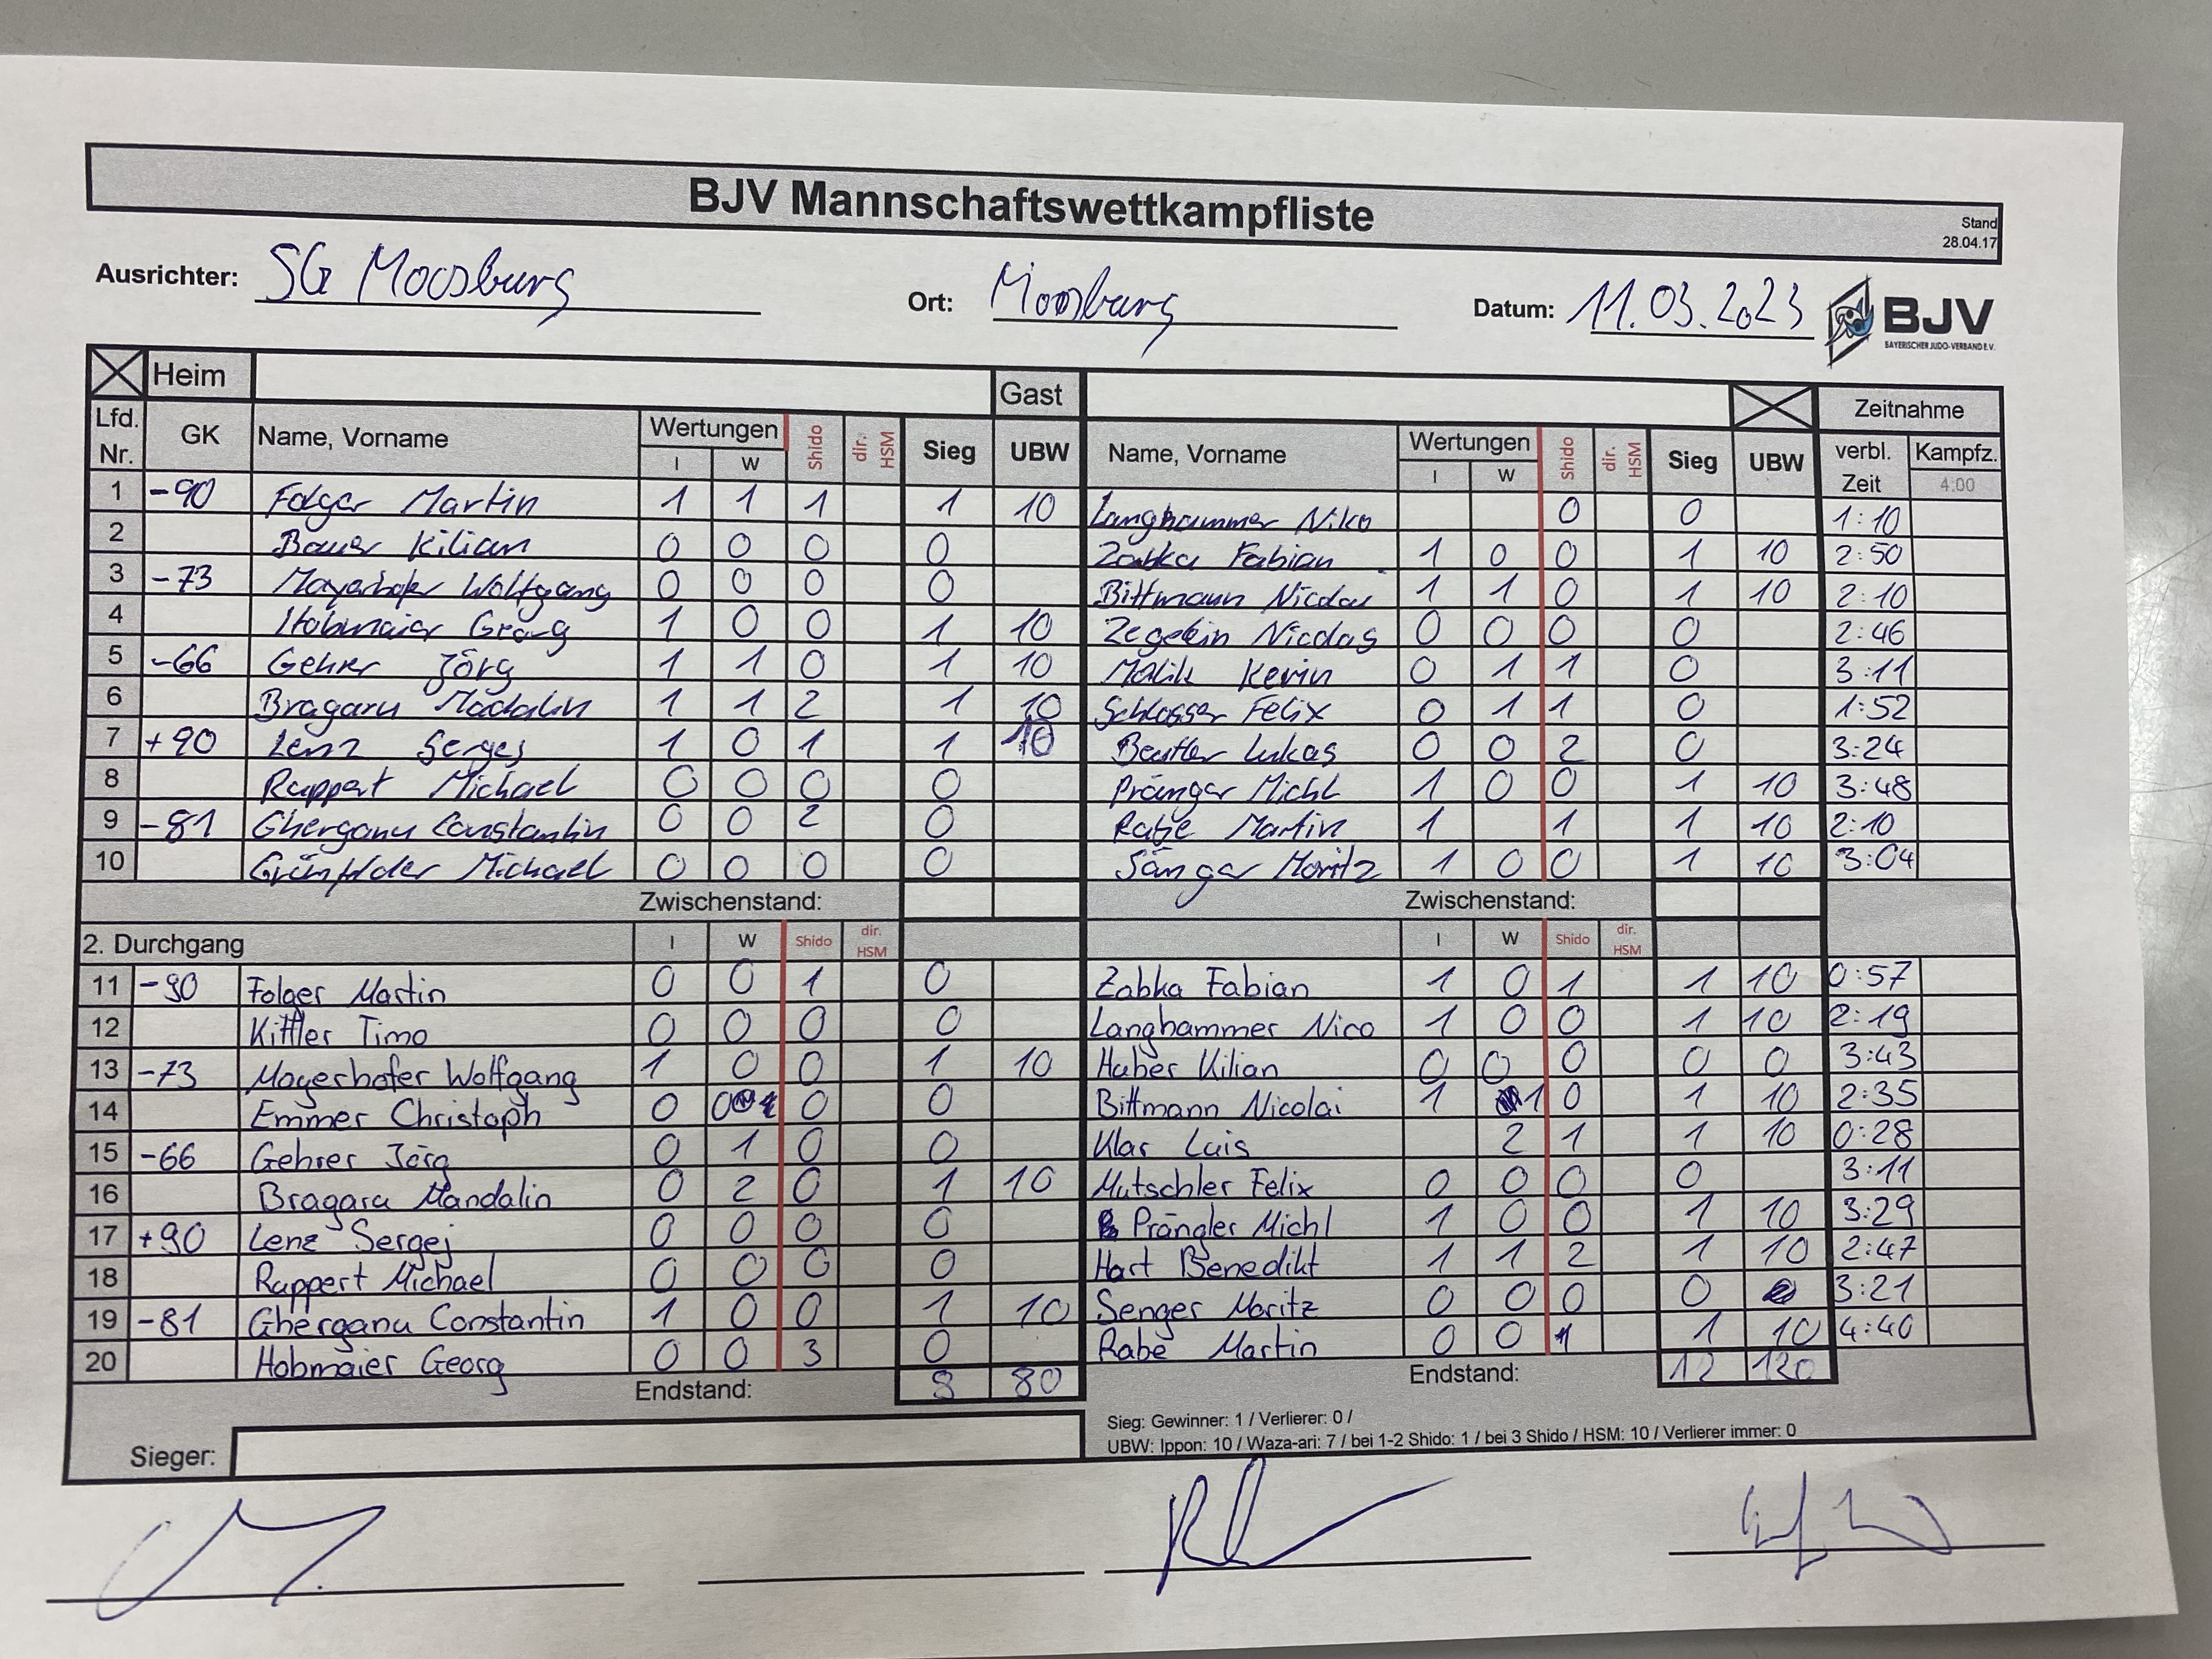 BJV Mannschaftswettkampfliste
Stand
28.04.17
Ausrichter: SG Moosburg Ort: Moosburg Datum: 11.03.2023
BJV
BAYERISCHER JUDO-VERBAND E.V.
Heim Gast Zeitnahme
Lfd. Nr. GK Name, Vorname Wertungen I W Shido dir. HSM Sieg UBW Name, Vorname Wertungen I W Shido dir. HSM Sieg UBW verbl. Zeit Kampfz. 4:00
1 -90 Folger Martin 1 1 1 1 10 Langhammer Niko 0 0 1:10
2 Bauer Kilian 0 0 0 0 Zabka Fabian 1 0 0 1 10 2:50
3 -73 Mayerhofer Wolfgang 0 0 0 0 Bittmann Nicolai 1 1 0 1 10 2:10
4 Hobmaier Georg 1 0 0 1 10 Zegelin Nicolas 0 0 0 0 2:46
5 -66 Gehrer Jörg 1 1 0 1 10 Malik Kevin 0 1 1 0 3:11
6 Bragaru Madalin 1 1 2 1 10 Schlosser Felix 0 1 1 0 1:52
7 +90 Lenz Sergej 1 0 1 1 10 Beutler Lukas 0 0 2 0 3:24
8 Ruppert Michael 0 0 0 0 Pränger Michl 1 0 0 1 10 3:48
9 -81 Gherganu Constantin 0 0 2 0 Rabe Martin 1 1 1 10 2:10
10 Grünfelder Michael 0 0 0 0 Sänger Moritz 1 0 0 1 10 3:04
Zwischenstand: Zwischenstand:
2. Durchgang I W Shido dir. HSM I W Shido dir. HSM
11 -90 Folger Martin 0 0 1 0 Zabka Fabian 1 0 1 1 10 0:57
12 Kittler Timo 0 0 0 0 Langhammer Nico 1 0 0 1 10 2:19
13 -73 Mayerhofer Wolfgang 1 0 0 1 10 Huber Kilian 0 0 0 0 0 3:43
14 Emmer Christoph 0 0 0 0 Bittmann Nicolai 1 1 0 1 10 2:35
15 -66 Gehrer Jörg 0 1 0 0 Klar Luis 2 1 1 10 0:28
16 Bragaru Mandalin 0 2 0 1 10 Mutschler Felix 0 0 0 0 3:11
17 +90 Lenz Sergej 0 0 0 0 Prängler Michl 1 0 0 1 10 3:29
18 Ruppert Michael 0 0 0 0 Hart Benedikt 1 1 2 1 10 2:47
19 -81 Gherganu Constantin 1 0 0 1 10 Senger Moritz 0 0 0 0 3:21
20 Hobmaier Georg 0 0 3 0 Rabe Martin 0 0 1 1 10 4:40
Endstand: 8 80 Endstand: 12 120
Sieg: Gewinner: 1 / Verlierer: 0 /
UBW: Ippon: 10 / Waza-ari: 7 / bei 1-2 Shido: 1 / bei 3 Shido / HSM: 10 / Verlierer immer: 0
Sieger: